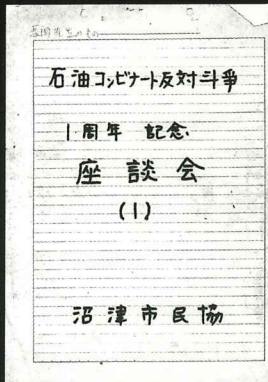 石油コンビナート反対斗争
1周年 記念
座談会
(1)
沼津市民協